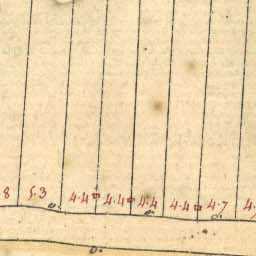 8 5.3 4.4 4.4 4.4 4.4 4.7 4.